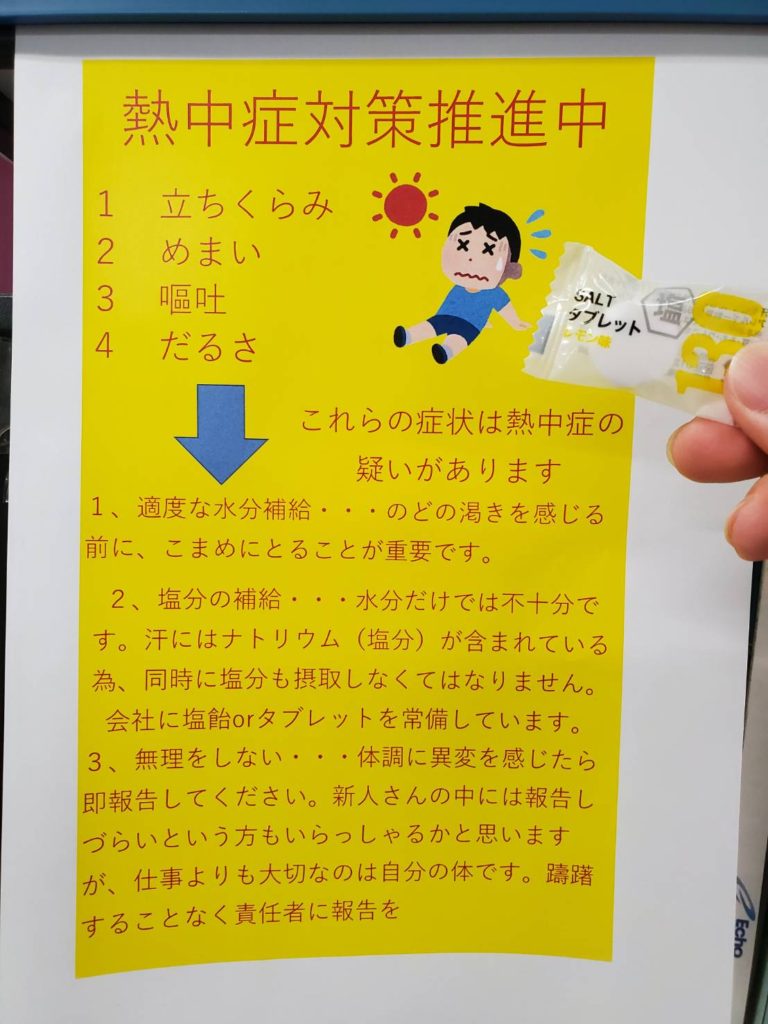 熱中症対策推進中
1 立ちくらみ
2 めまい
3 嘔吐
4 だるさ
SALT
タブレット
レモン味
塩
130
これらの症状は熱中症の
疑いがあります
１、適度な水分補給・・・のどの渇きを感じる
前に、こまめにとることが重要です。
２、塩分の補給・・・水分だけでは不十分で
す。汗にはナトリウム（塩分）が含まれている
為、同時に塩分も摂取しなくてはなりません。
会社に塩飴orタブレットを常備しています。
３、無理をしない・・・体調に異変を感じたら
即報告してください。新人さんの中には報告し
づらいという方もいらっしゃるかと思います
が、仕事よりも大切なのは自分の体です。躊躇
することなく責任者に報告を
Echo